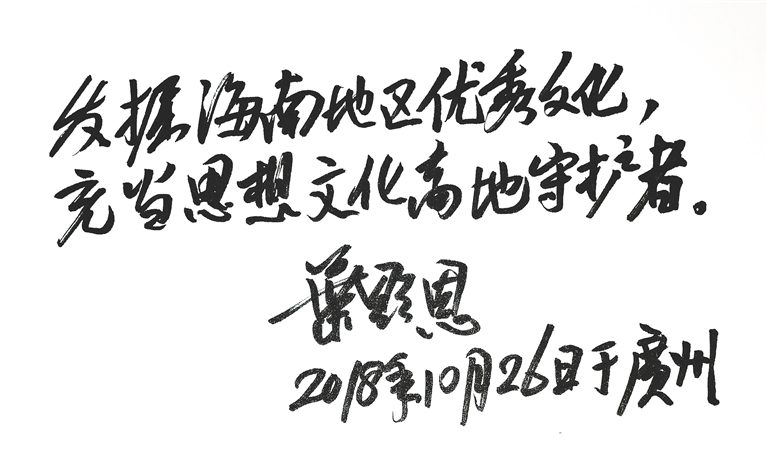 发掘海南地区优秀文化，
充当思想文化高地守护者。
叶显恩
2018年10月26日于廣州